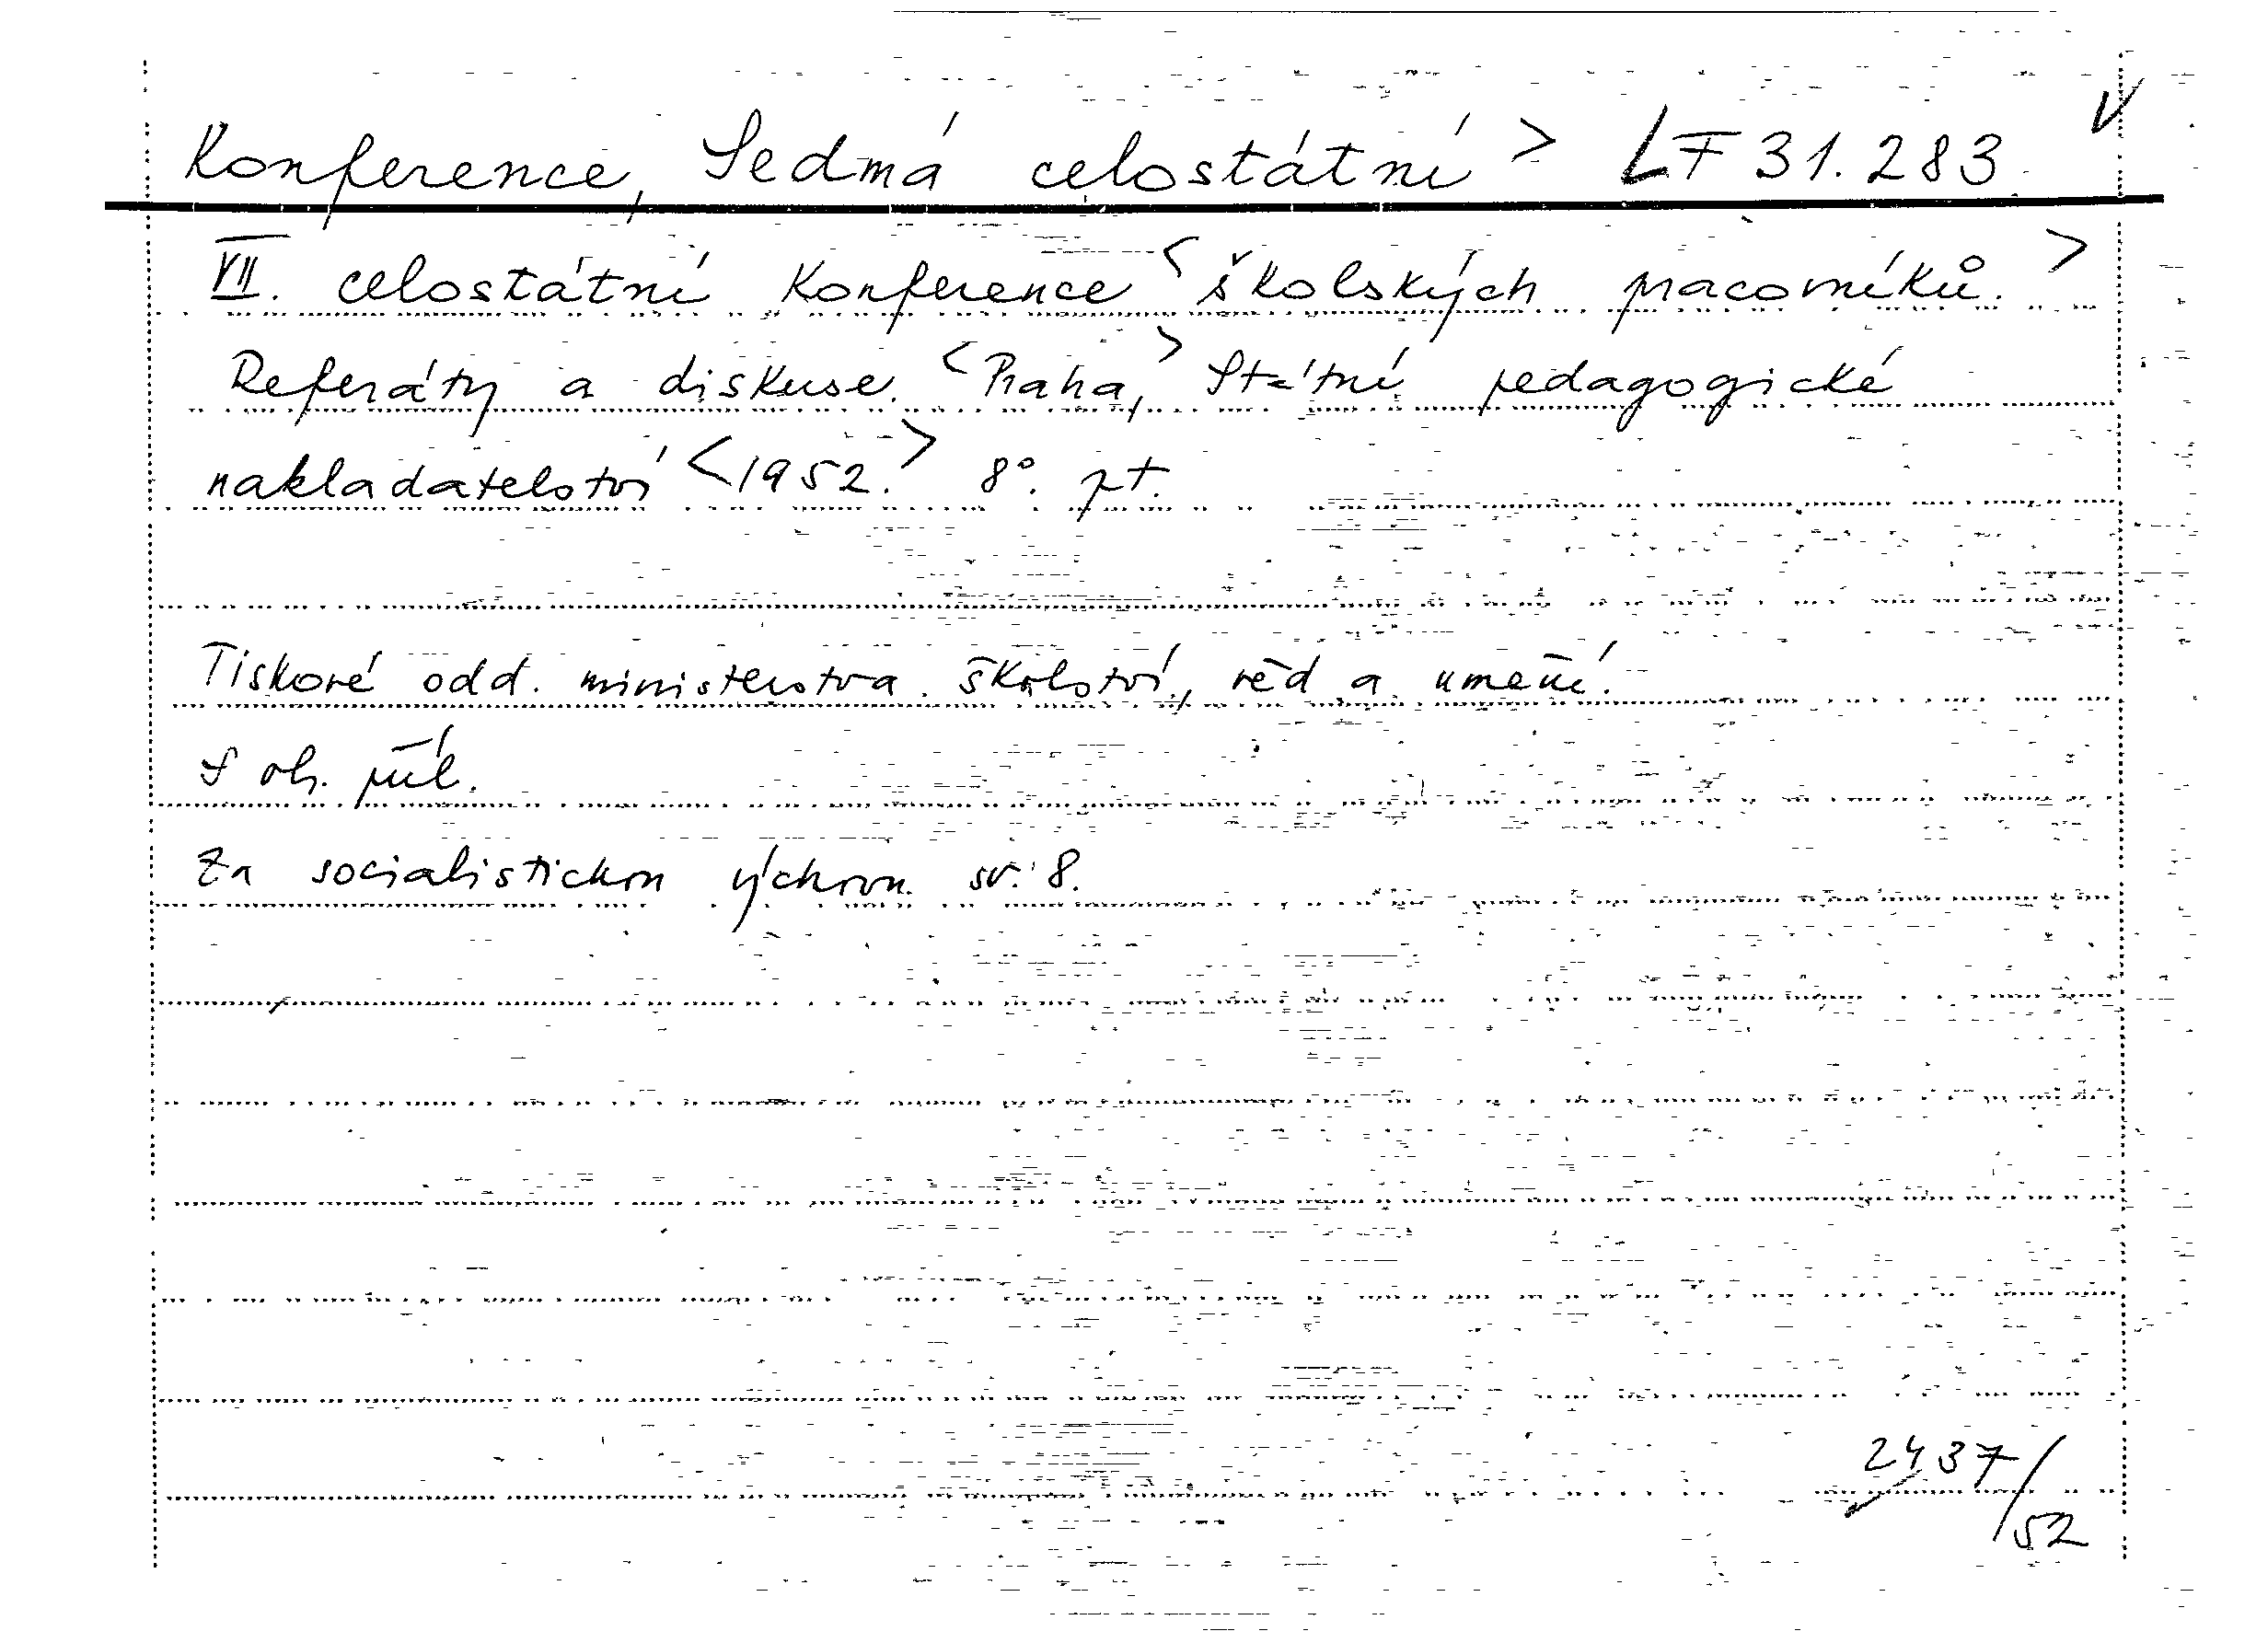 Konference, Sedmá celostátní > LF 31.283. V
VII. celostátní konference <školských pracovníků.>
Referáty a diskuse. <Praha,> Státní pedagogické
nakladatelství <1952.> 8°. pt.
Tiskové odd. ministerstva školství, věd a umění.
S ob. příl.
Za socialistickou výchovu. sv. 8.
2437/52